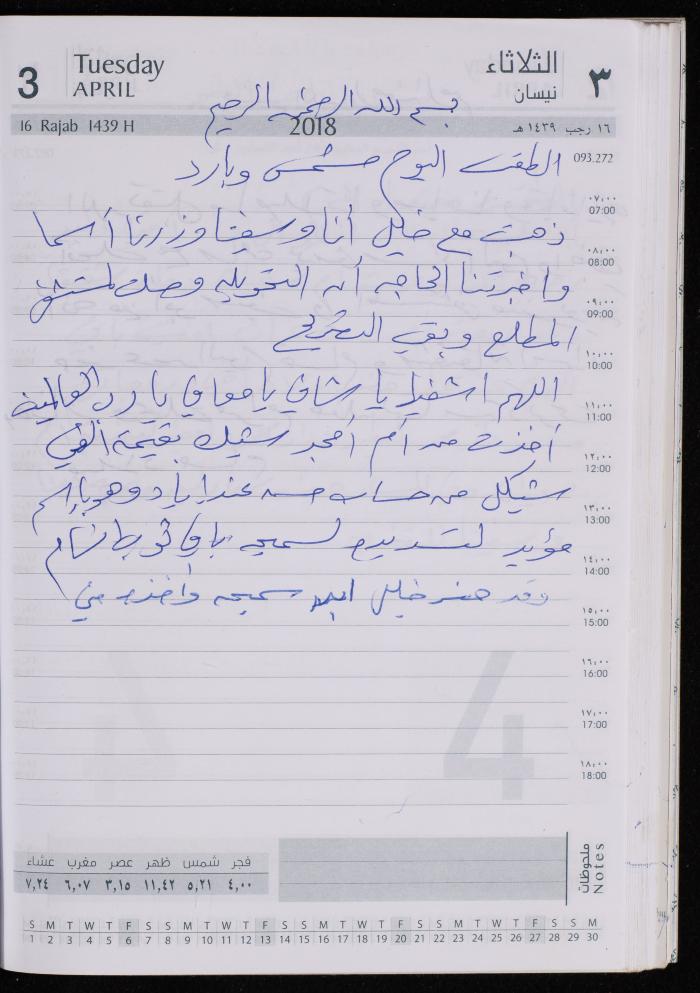 3
Tuesday
APRIL
الثلاثاء
نيسان
٣
بسم الله الرحمن الرحيم
16 Rajab 1439 H
2018
١٦ رجب ١٤٣٩ هـ
093.272
الطقس اليوم مشمس وبارد
٠٧:٠٠
07:00
ذهبت مع خليل أنا و وزرنا أسما
٠٨:٠٠
08:00
واخبرتنا الحاجه أن التحويله وصلت لمستشفى
٠٩:٠٠
09:00
المطلع وبقي التصريح
١٠:٠٠
10:00
اللهم اشفيها يا شافي يا معافي يا رب العالمين
١١:٠٠
11:00
أخذت من أم أمجد شيك بقيمة ألفي
١٢:٠٠
12:00
شيكل من حساب حسن وهو بإسم
١٣:٠٠
13:00
مؤيد لتسديده لسميحه باقي
١٤:٠٠
14:00
وقد حضر خليل ابن سميحه وأخذه مني
١٥:٠٠
15:00
١٦:٠٠
16:00
١٧:٠٠
17:00
١٨:٠٠
18:00
فجر شمس ظهر عصر مغرب عشاء
٤,٠٠ ٥,٢١ ١١,٤٢ ٣,١٥ ٦,٠٧ ٧,٢٤
ملحوظات
Notes
S M T W T F S S M T W T F S S M T W T F S S M T W T F S S M
1 2 3 4 5 6 7 8 9 10 11 12 13 14 15 16 17 18 19 20 21 22 23 24 25 26 27 28 29 30